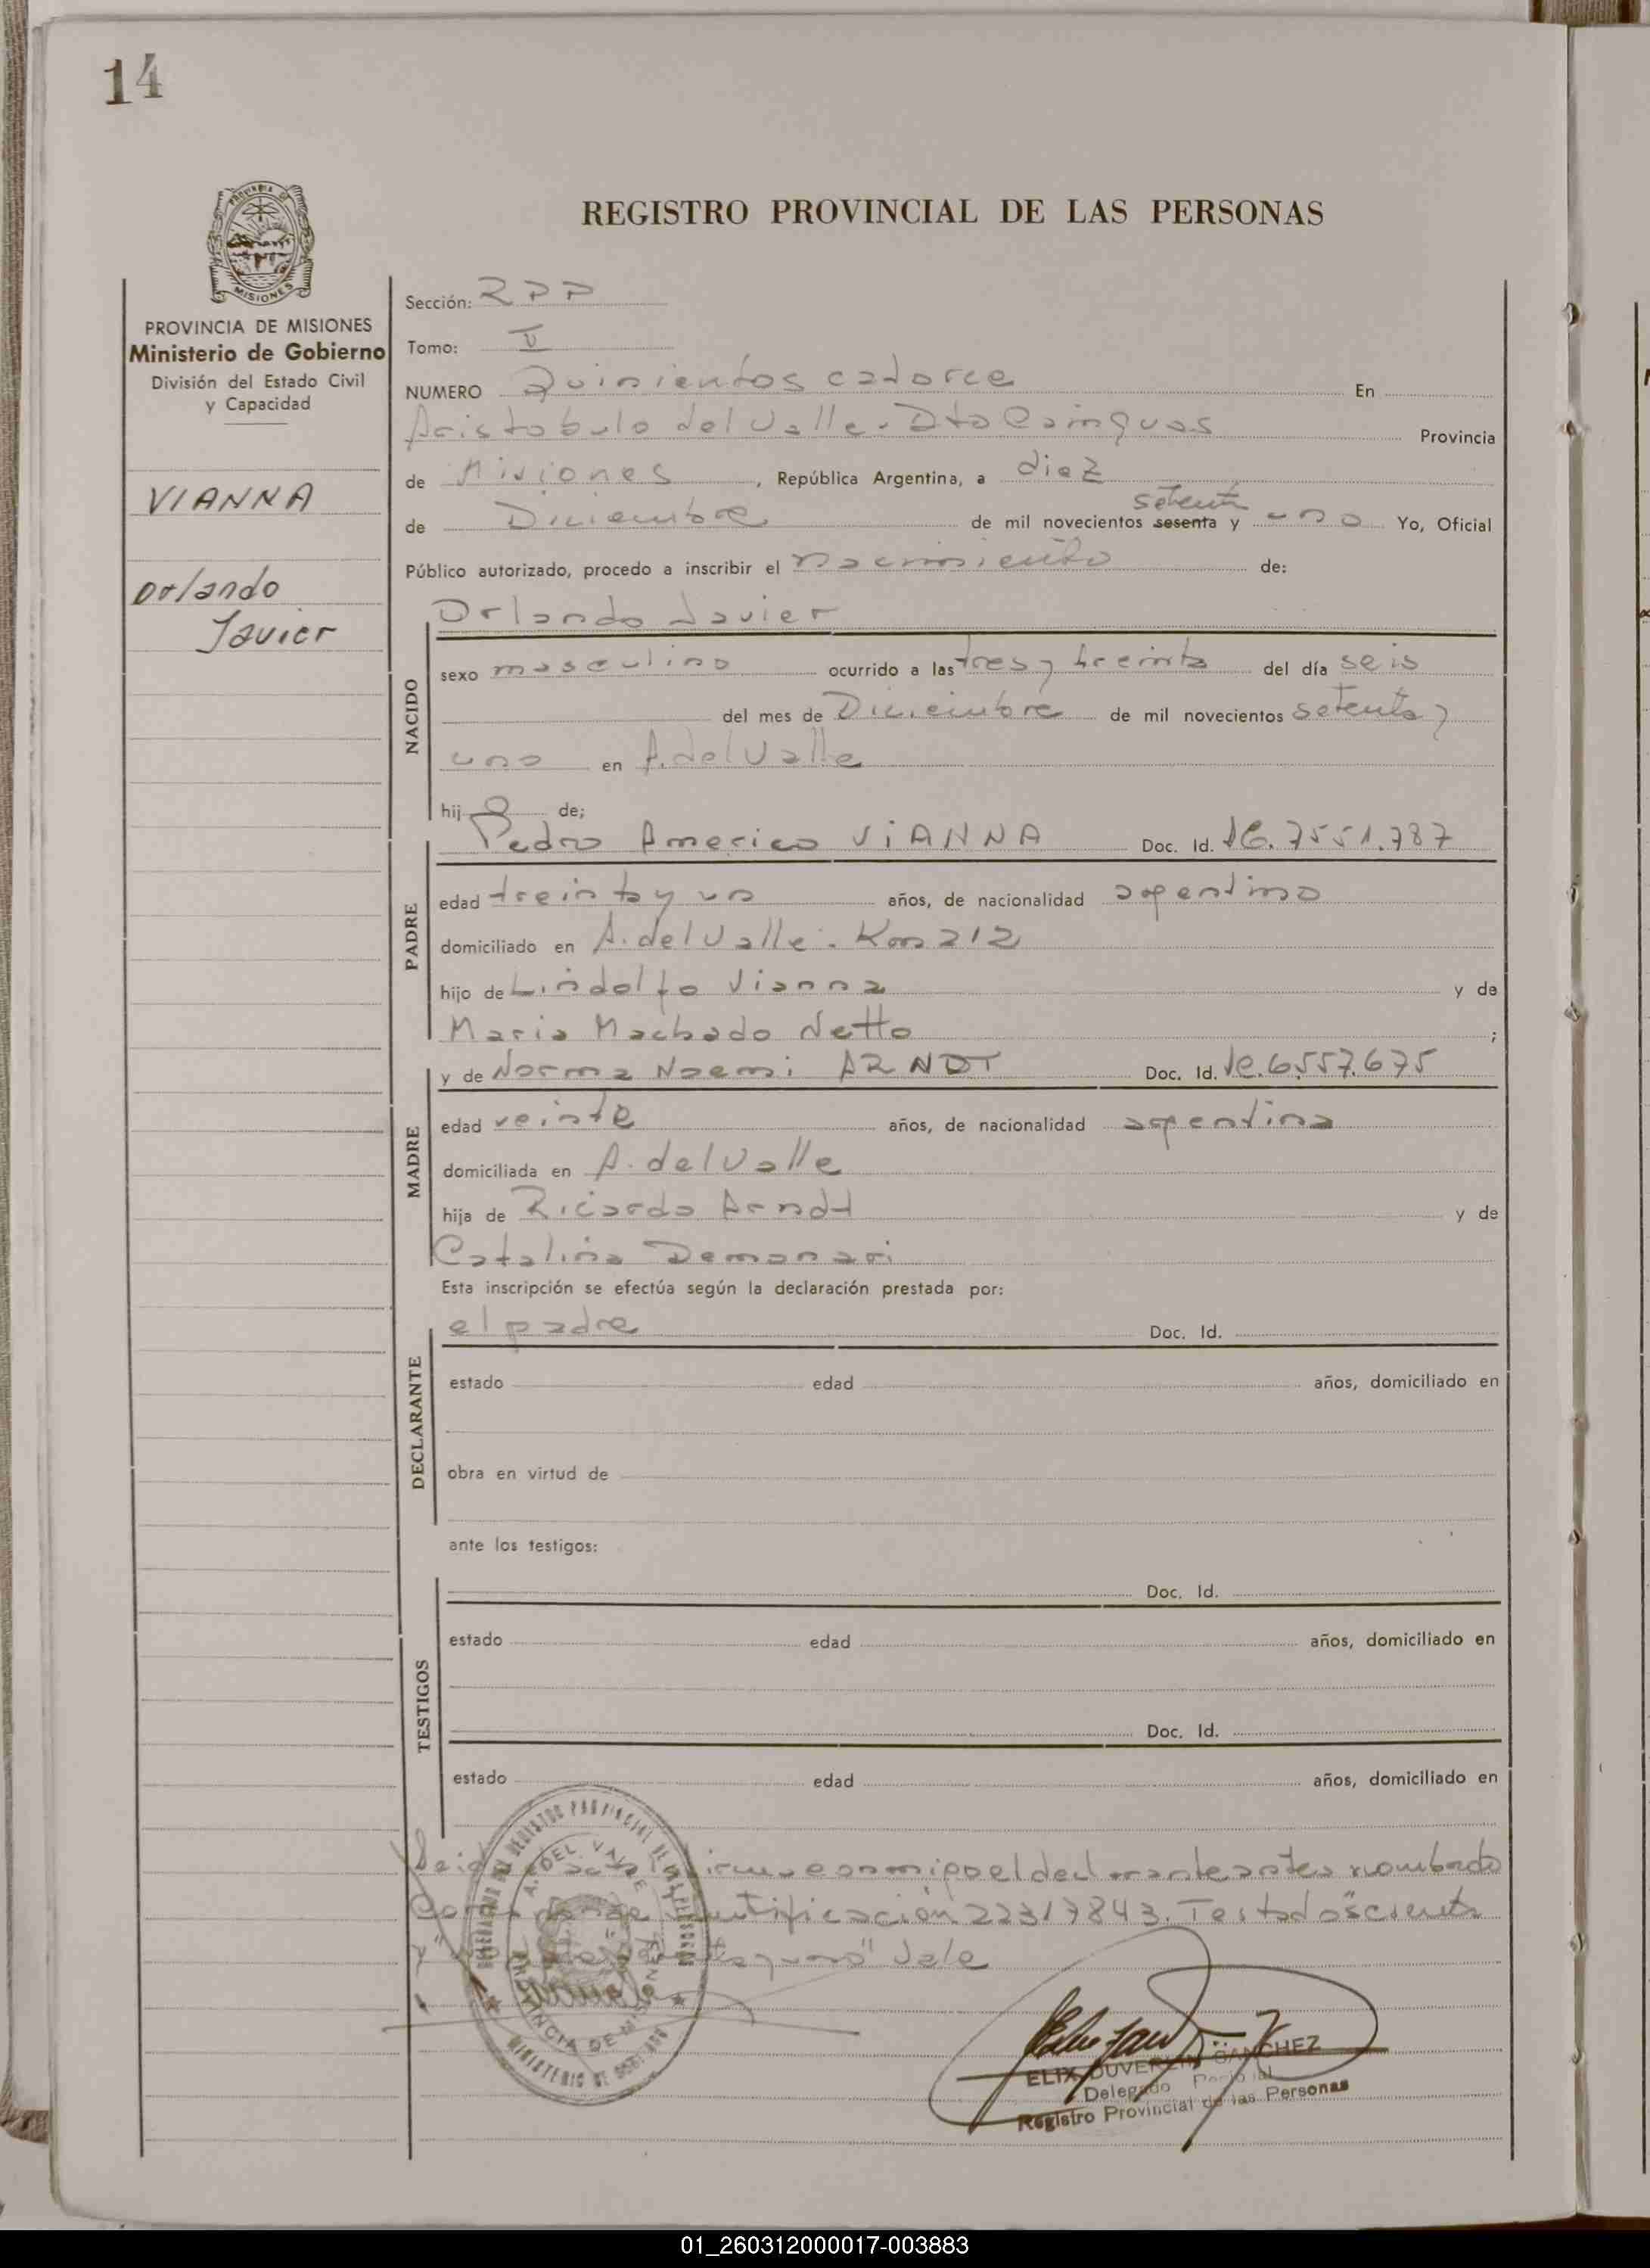 14
PROVINCIA DE MISIONES
REGISTRO PROVINCIAL DE LAS PERSONAS
PROVINCIA DE MISIONES
Ministerio de Gobierno
División del Estado Civil
y Capacidad
VIANNA
Orlando
Javier
Sección: RPP
Tomo: V
NUMERO Quinientos catorce En
Aristobulo del Valle. Dto Cainguas Provincia
de Misiones, República Argentina, a diez
setenta
de Diciembre de mil novecientos sesenta y uno Yo, Oficial
Público autorizado, procedo a inscribir el nacimiento de:
Orlando Javier
NACIDO
sexo masculino ocurrido a las tres y treinta del día seis
del mes de Diciembre de mil novecientos setenta y
uno en A. del Valle
hijo de;
Pedro Americo VIANNA Doc. Id. 7551.787
PADRE
edad treinta y un años, de nacionalidad argentino
domiciliado en A. del Valle. Km 212
hijo de Lindolfo Vianna y de
Maria Machado Netto ;
y de Norma Noemi ARNDT Doc. Id. 6.557.675
MADRE
edad veinte años, de nacionalidad argentina
domiciliada en A. del Valle
hija de Ricardo Arndt y de
Catalina Demonari
Esta inscripción se efectúa según la declaración prestada por:
el padre Doc. Id.
DECLARANTE
estado edad años, domiciliado en
obra en virtud de
ante los testigos:
Doc. Id.
TESTIGOS
estado edad años, domiciliado en
Doc. Id.
estado edad años, domiciliado en
conmigo el declarante antes nombrado
22317843. Testado
Vale
REGISTRO PROVINCIAL DE LAS PERSONAS
A. DEL VALLE
PROVINCIA DE MISIONES
MINISTERIO DE GOBIERNO
SANCHEZ
Delegado
Registro Provincial de las Personas
01_260312000017-003883